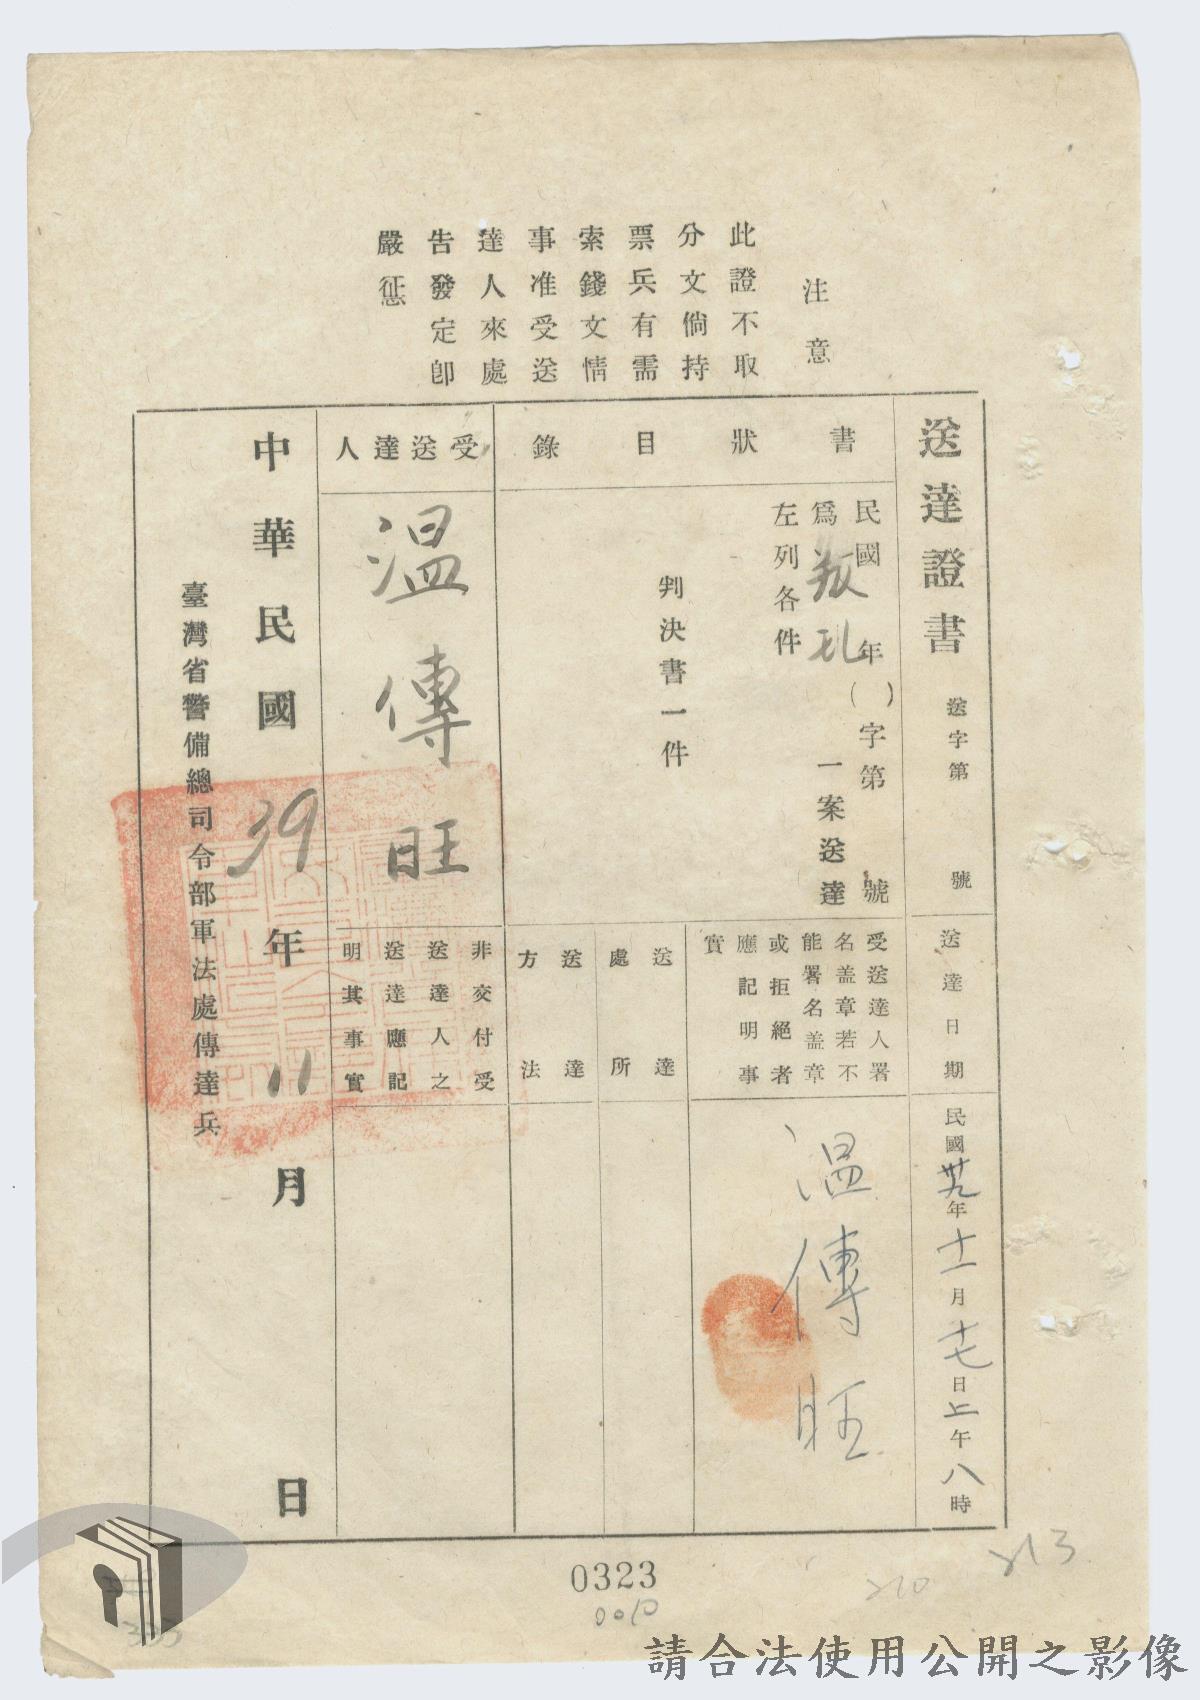 注意
此證不取
分文倘持
票兵有需
索錢文情
事准受送
達人來處
告發定卽
嚴征惩
送達證書 送字第 號
送達日期 民國卅九年十一月十七日上午八時
書狀目錄
民國 年( )字第 號
爲叛乱 一案送達
左列各件
判決書一件
受送達人署
名盖章若不
能署名盖章
或拒絕者
應記明事
實
温傳旺
送達處所
送達方法
受送達人
温傳旺
非交付受
送達人之
送達應記
明其事實
中華民國39年11月 日
臺灣省警備總司令部軍法處傳達兵
213
210
0323
0010
請合法使用公開之影像